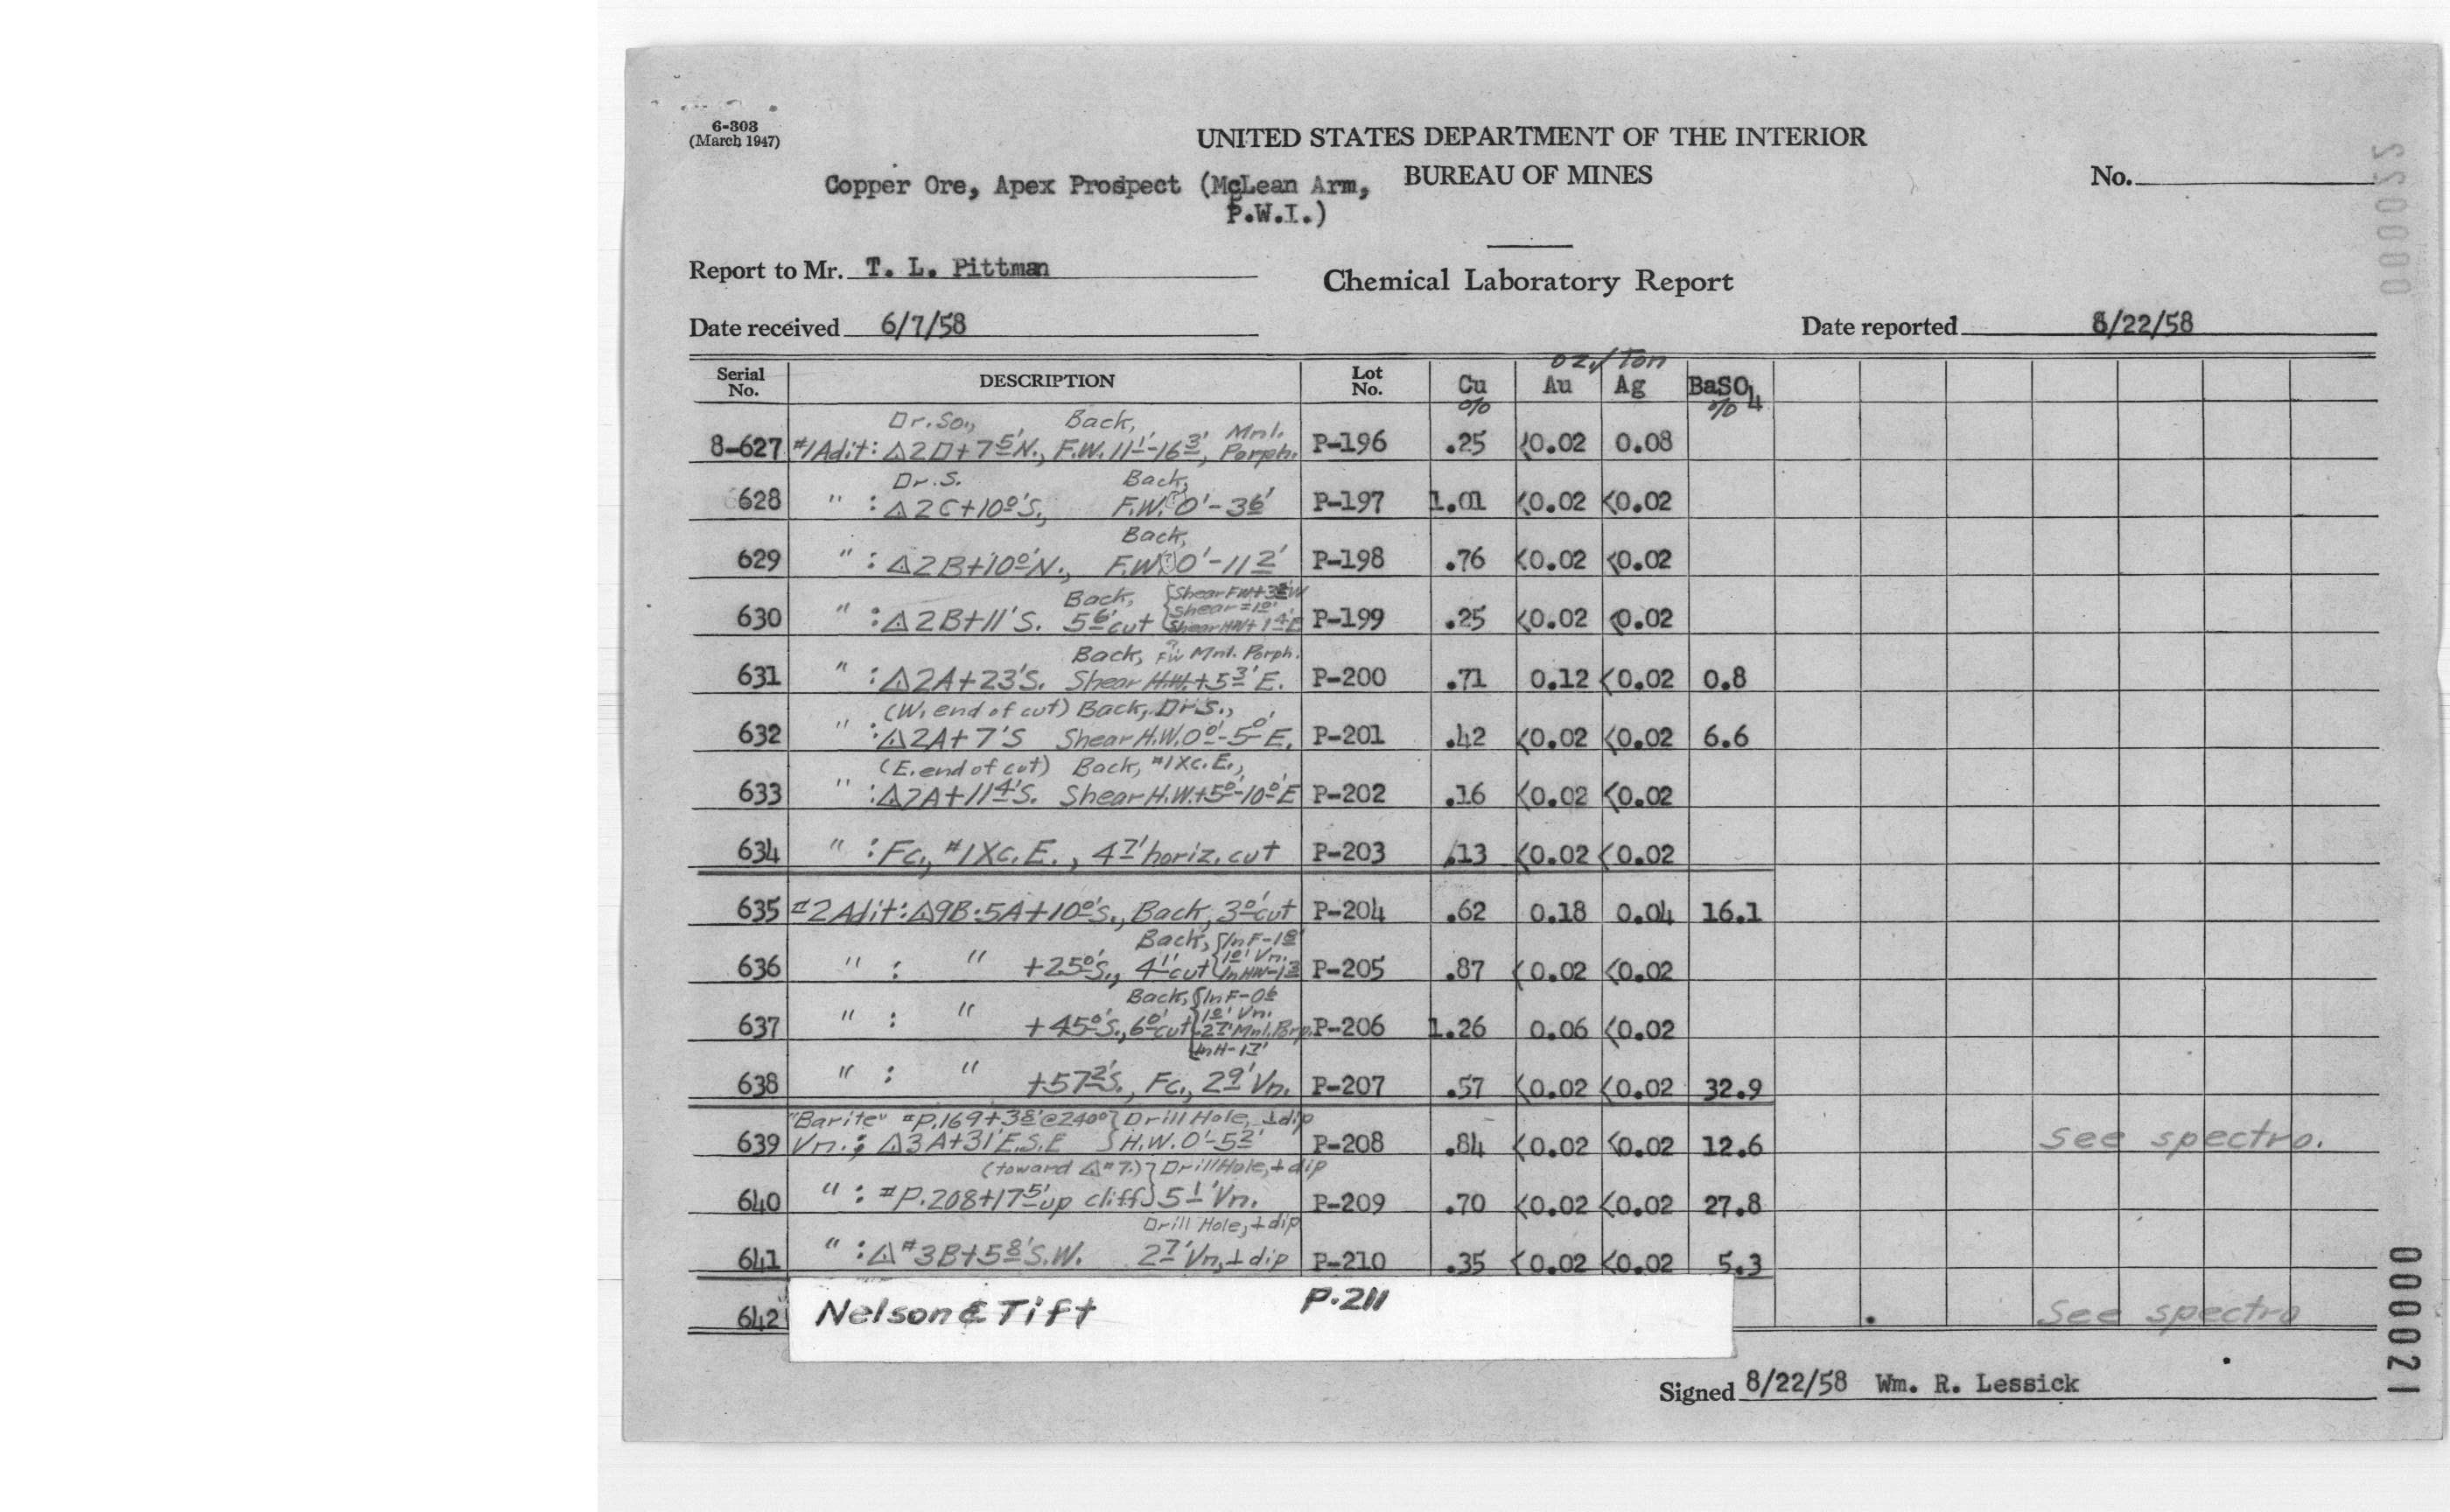 6-303
(March 1947)
UNITED STATES DEPARTMENT OF THE INTERIOR
BUREAU OF MINES
No.
Copper Ore, Apex Prospect (McLean Arm,
P.W.I.)
Report to Mr. T. L. Pittman
Chemical Laboratory Report
Date received 6/7/58
Date reported 8/22/58
oz./Ton
Serial No. DESCRIPTION Lot No. Cu % Au Ag BaSO4 %
Dr. So., Back, Mnl.
8-627 #1 Adit: △2D+7 5' N., F.W. 11'-16 3', Porph. P-196 .25 <0.02 0.08
Dr. S. Back,
628 " : △2C+10 0' S., F.W. 0'-3 6' P-197 1.01 <0.02 <0.02
Back,
629 " : △2B+10 0' N., F.W. 0'-11 2' P-198 .76 <0.02 <0.02
Back, Shear FW+ W
shear = 1 0'
630 " : △2B+11' S. 5 6' cut Shear HW+ 1 4' E P-199 .25 <0.02 <0.02
Back, FW Mnl. Porph.
631 " : △2A+23' S. Shear H.W.+5 3' E. P-200 .71 0.12 <0.02 0.8
(W. end of cut) Back, Dr. S.,
632 " : △2A+7' S Shear H.W. 0 0'-5 0' E. P-201 .42 <0.02 <0.02 6.6
(E. end of cut) Back, #1 Xc. E.,
633 " : △2A+11 4' S. Shear H.W.+5 0'-10 0' E P-202 .16 <0.02 <0.02
634 " : Fc., #1 Xc. E., 4 7' horiz. cut P-203 .13 <0.02 <0.02
635 #2 Adit: △9B:5A+10 0' S., Back, 3 0' cut P-204 .62 0.18 0.04 16.1
Back, In F-1 8'
1 0' Vn.
636 " : " +25 0' S., 4 1' cut In HW-1 3 P-205 .87 <0.02 <0.02
Back, In F-0 6
1 0' Vn.
637 " : " +45 0' S., 6 0' cut 2 7' Mnl. Porp. P-206 1.26 0.06 <0.02
In H-1 7'
638 " : " +57 2' S., Fc., 2 9' Vn. P-207 .57 <0.02 <0.02 32.9
"Barite" #P.169+3 8' @ 240° Drill Hole, ⊥ dip
639 Vn.; △3A+31' E.S.E H.W. 0'-5 2' P-208 .84 <0.02 <0.02 12.6 See spectro.
(toward △#7.) Drill Hole, ⊥ dip
640 " : #P.208+17 5' up cliff 5 1' Vn. P-209 .70 <0.02 <0.02 27.8
Drill Hole, ⊥ dip
641 " : △#3B+5 8' S.W. 2 7' Vn., ⊥ dip P-210 .35 <0.02 <0.02 5.3
642 Nelson & Tift P.211 See spectro
Signed 8/22/58 Wm. R. Lessick
000022
000021